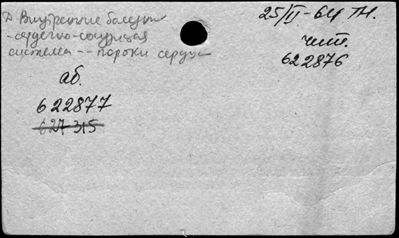 Внутренние болезни
25/II-64 ТН.
- сердечно-сосудистая
система -- пороки сердца
чит.
622876
аб.
622877
627315